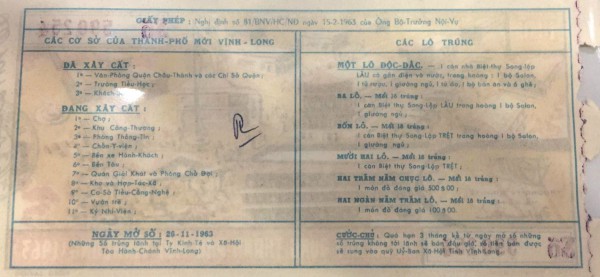 GIẤY PHÉP : Nghị định số 81/BNV/HC/NĐ ngày 25-2-1963 của Ông Bộ-Trưởng Nội-Vụ
CÁC CƠ SỞ CỦA THÀNH-PHỐ MỚI VĨNH-LONG
ĐÃ XÂY CẤT :
1º — Văn-Phòng Quận Châu-Thành và các Chi Sở Quận ;
2º — Trường Tiểu-Học ;
3º — Khách
ĐANG XÂY CẤT :
1º — Chợ ;
2º — Khu Công-Thương ;
3º — Phòng Thông-Tin ;
4º — Chẩn-Y-viện ;
5º — Bến xe Hành-Khách ;
6º — Bến Tàu ;
7º — Quán Giải Khát và Phòng Chờ Đợi ;
8º — Kho và Hợp-Tác-Xã ;
9º — Cơ-Sở Tiểu-Công-Nghệ ;
10º — Vườn Hề ;
11º — Ký Nhi-Viện ;
NGÀY MỞ SỐ : 26-11-1963
(Những Số trúng lãnh tại Ty Kinh-Tế và Xã-Hội
Tòa Hành-Chánh Vĩnh-Long)
CÁC LÔ TRÚNG
MỘT LÔ ĐỘC-ĐẮC. — 1 căn nhà Biệt thự Song-lập
LẦU có gắn điện và nước, trang hoàng : 1 bộ Salon,
1 tủ rượu, 1 giường ngủ, 1 tủ áo, 1 bộ bàn ăn và 6 ghế ;
BA LÔ. — Mỗi lô trúng :
1 căn Biệt thự Song-Lập LẦU trang hoàng 1 bộ Salon,
1 giường ngủ ;
BỐN LÔ. — Mỗi lô trúng :
1 căn Biệt thự Song-Lập TRỆT trang hoàng 1 bộ Salon,
1 giường ngủ ;
MƯỜI HAI LÔ. — Mỗi lô trúng :
1 căn biệt thự Song-Lập TRỆT ;
HAI TRĂM NĂM CHỤC LÔ. — Mỗi lô trúng :
1 món đồ đáng giá 500$00 ;
HAI NGÀN NĂM TRĂM LÔ. — Mỗi lô trúng :
1 món đồ đáng giá 100$00.
CƯỚC-CHÚ : Quá hạn 3 tháng kể từ ngày mở số những
số trúng không tới lãnh sẽ bán đấu giá, số tiền bán được
sẽ sung vào quỹ Uỷ-Ban Xã-Hội Tỉnh Vĩnh-Long.